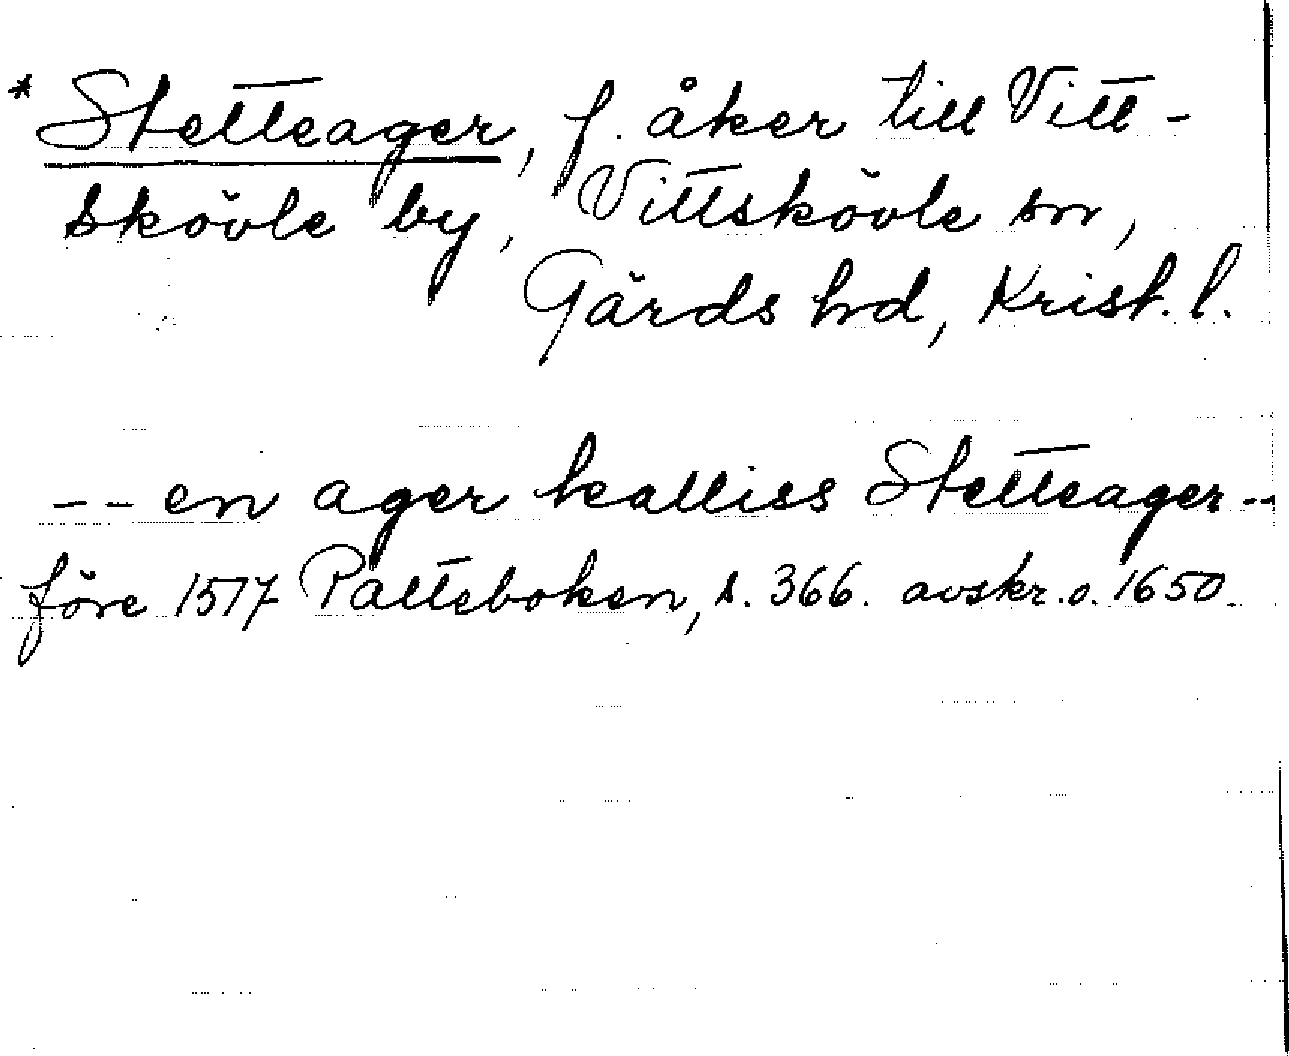 * Stetteager, f. åker till Vitt-
skövle by, Vittskövle sn,
Gärds hd, Krist. l.
-- en ager kalliss Stetteager --
före 1517 Palteboken, s. 366. avskr. o. 1650.